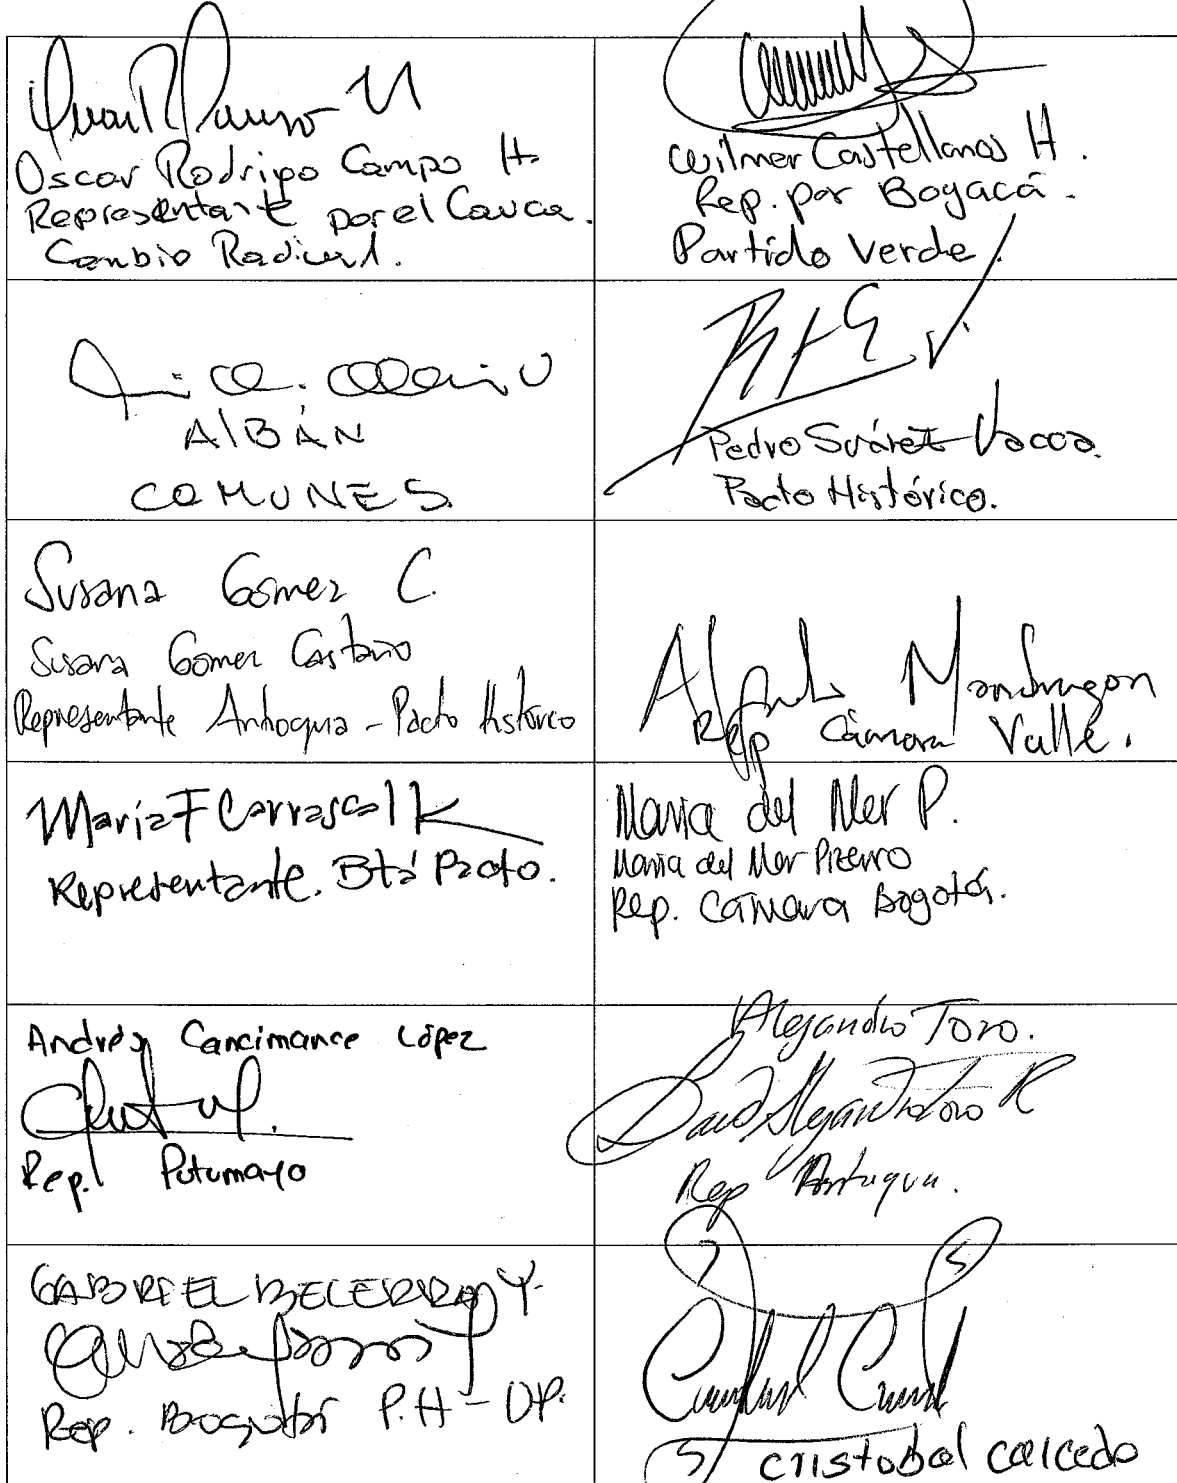 Oscar Rodrigo Campo H.
Representante por el Cauca.
Cambio Radical.
Wilmer Castellanos H.
Rep. por Boyacá.
Partido Verde.
AlBÁN
COMUNES
Pedro Suárez Vacca.
Pacto Histórico.
Susana Gómez C.
Susana Gómez Castaño
Representante Antioquia - Pacto Histórico
Alfredo Mondragon
Rep Cámara Valle.
María F Carrascal
Representante. Btá Pacto.
Maria del Mar P.
Maria del Mar Pizarro
Rep. Cámara Bogotá.
Andrés Cancimance López
Rep. Putumayo
Alejandro Toro.
David Alejandro Toro R
Rep Antioquia.
GABRIEL BECERRA Y.
Rep. Bogotá P.H - UP.
Cristobal Caicedo